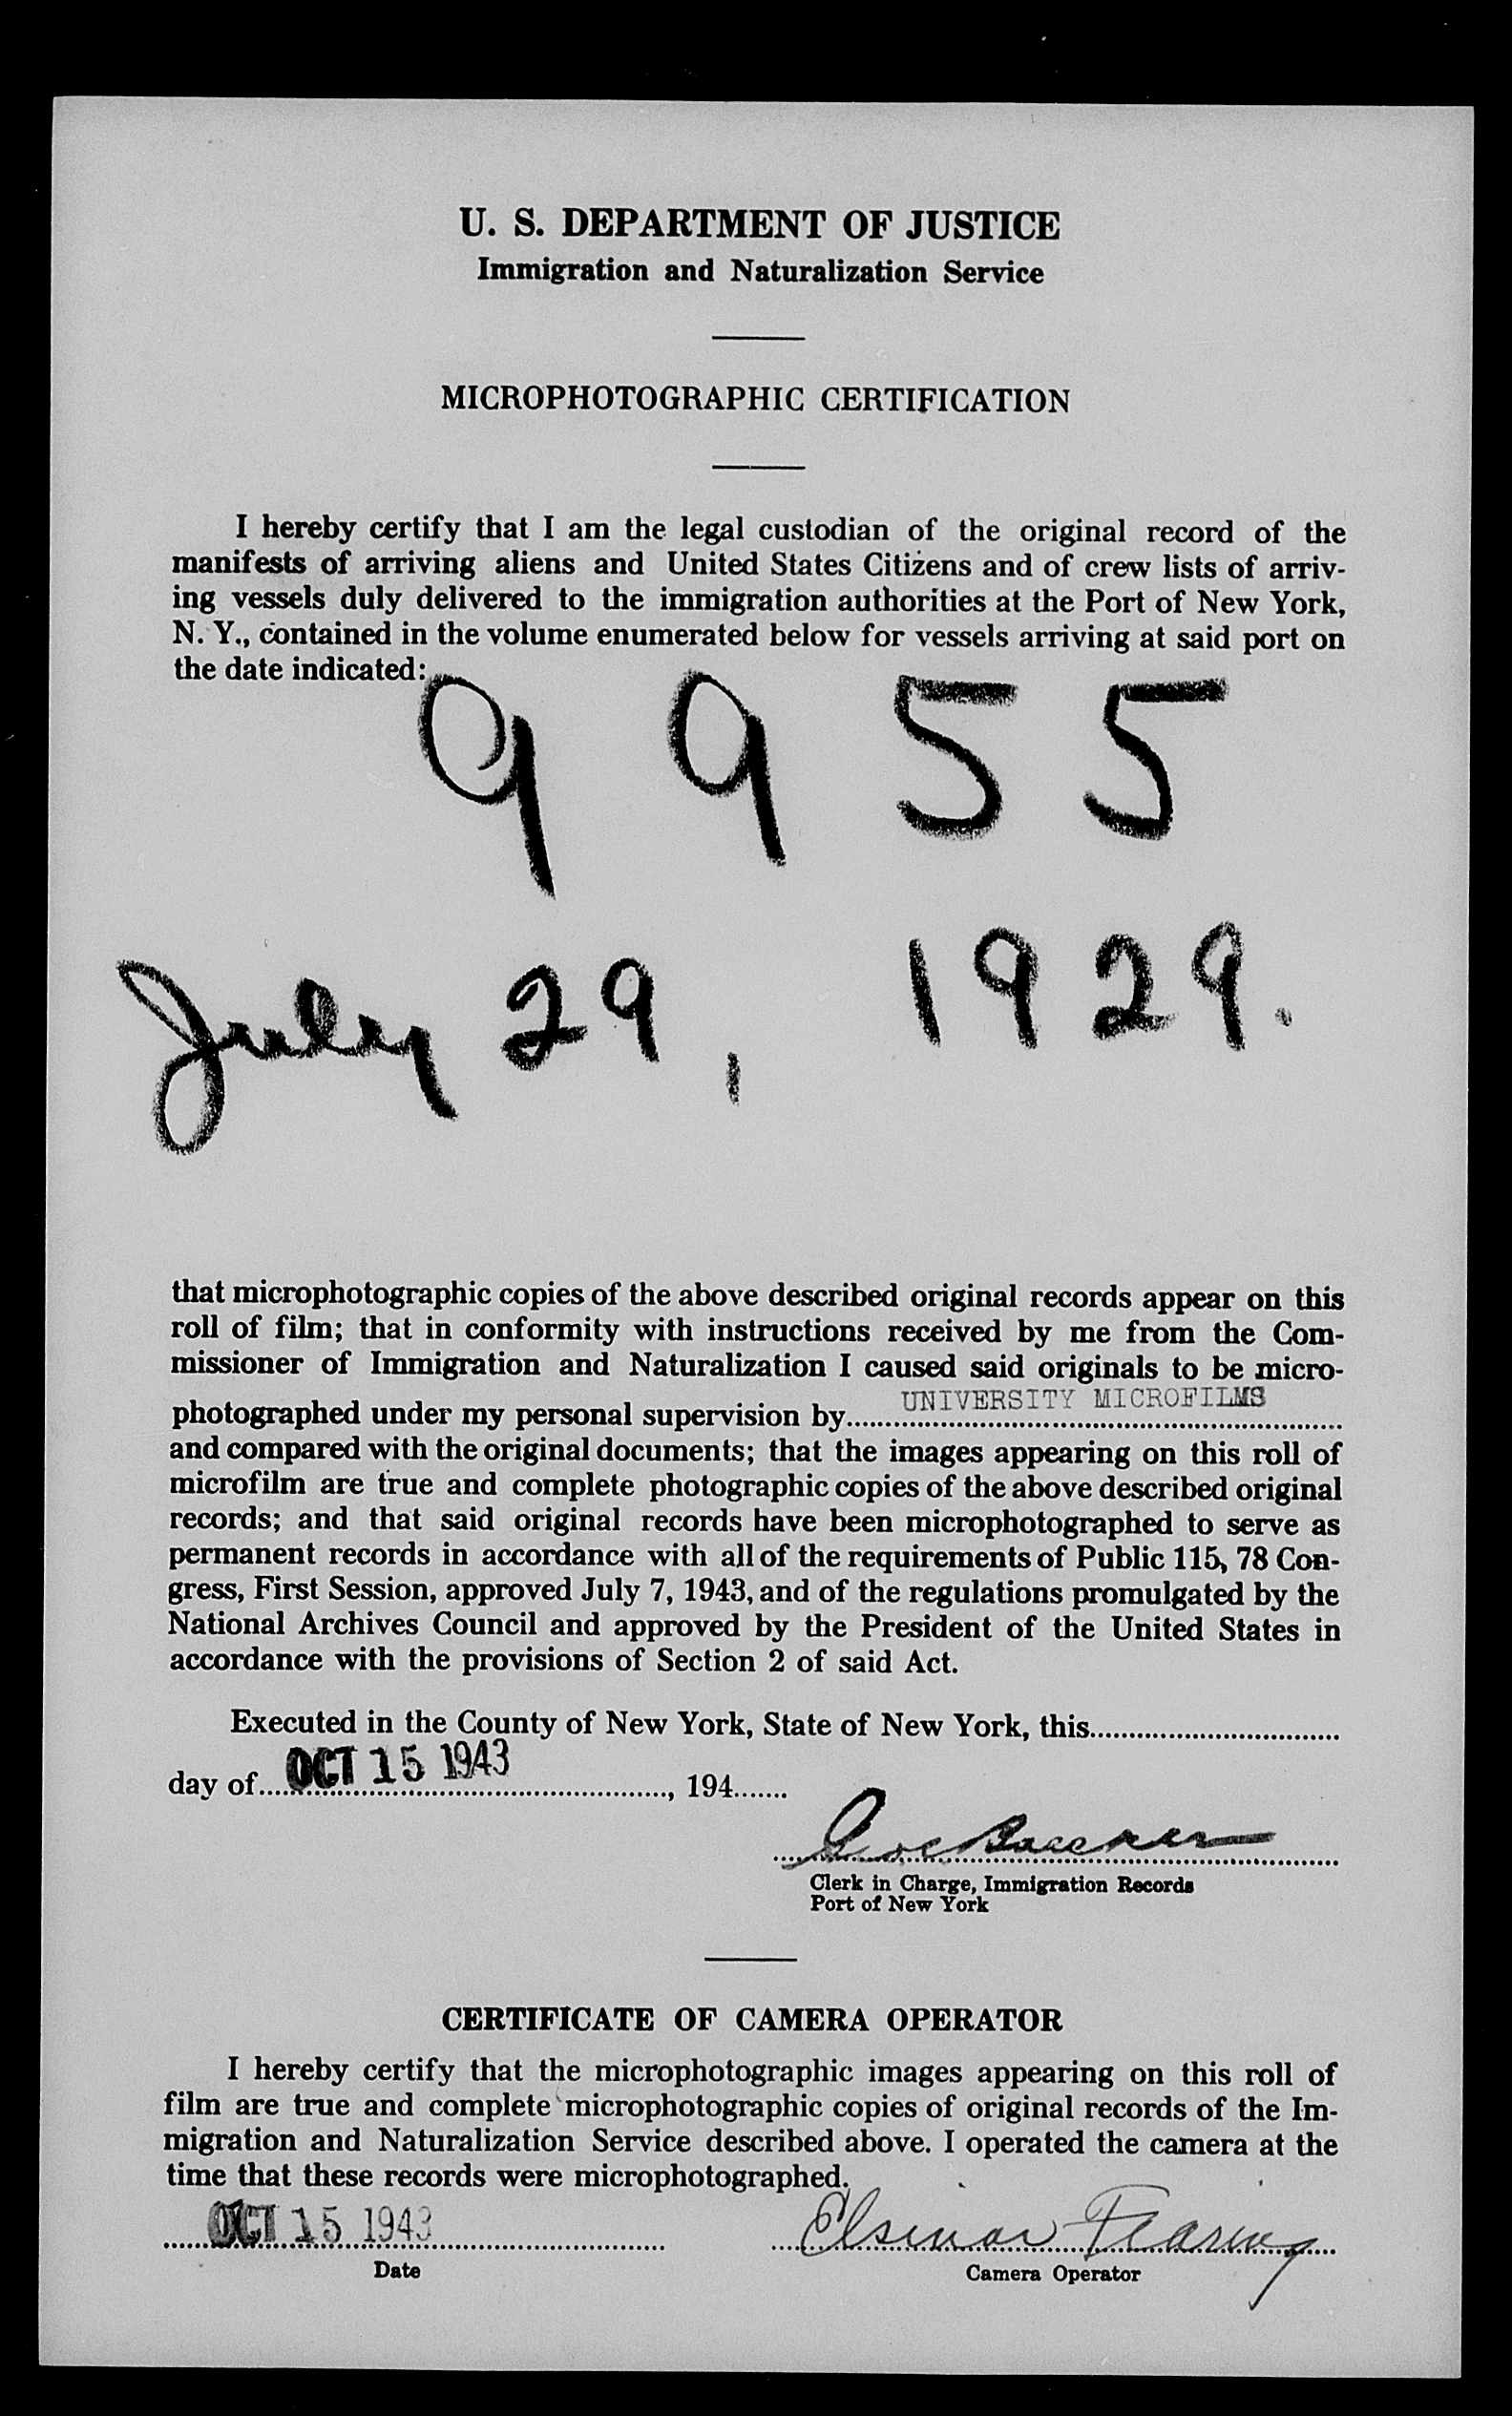 U. S. DEPARTMENT OF JUSTICE
Immigration and Naturalization Service
MICROPHOTOGRAPHIC CERTIFICATION
I hereby certify that I am the legal custodian of the original record of the
manifests of arriving aliens and United States Citizens and of crew lists of arriv-
ing vessels duly delivered to the immigration authorities at the Port of New York,
N. Y., contained in the volume enumerated below for vessels arriving at said port on
the date indicated:
9955
July 29, 1929.
that microphotographic copies of the above described original records appear on this
roll of film; that in conformity with instructions received by me from the Com-
missioner of Immigration and Naturalization I caused said originals to be micro-
photographed under my personal supervision by UNIVERSITY MICROFILMS
and compared with the original documents; that the images appearing on this roll of
microfilm are true and complete photographic copies of the above described original
records; and that said original records have been microphotographed to serve as
permanent records in accordance with all of the requirements of Public 115, 78 Con-
gress, First Session, approved July 7, 1943, and of the regulations promulgated by the
National Archives Council and approved by the President of the United States in
accordance with the provisions of Section 2 of said Act.
Executed in the County of New York, State of New York, this
day of OCT 15 1943, 194
Clerk in Charge, Immigration Records
Port of New York
CERTIFICATE OF CAMERA OPERATOR
I hereby certify that the microphotographic images appearing on this roll of
film are true and complete microphotographic copies of original records of the Im-
migration and Naturalization Service described above. I operated the camera at the
time that these records were microphotographed.
OCT 15 1943 Fearing
Date Camera Operator